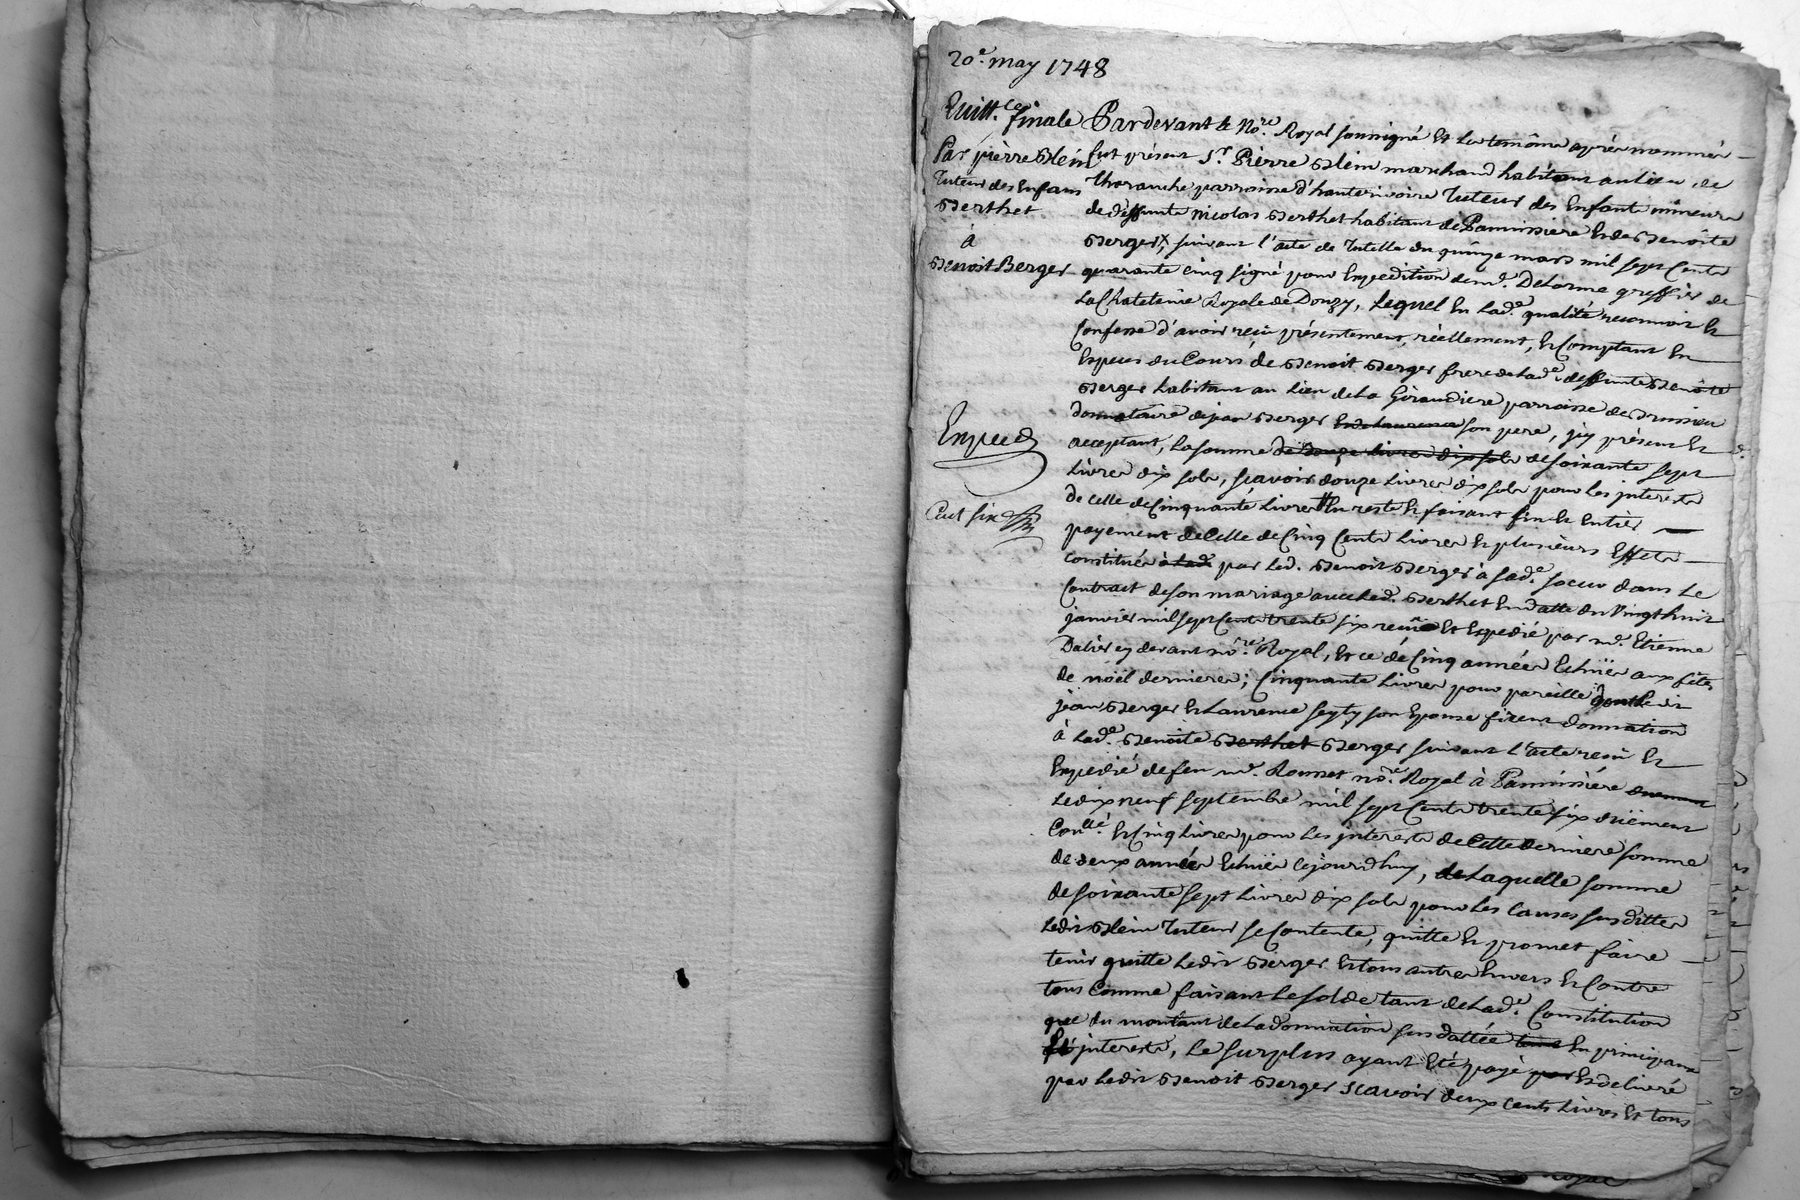 20.e may 1748
Quitt.ce finale
Par pierre Blein
Tuteur des Enfans
Berthet
à
Benoit Berger
Expedié
Cent six
Pardevant le No.re Royal soussigné Et les temoins après nommés
fut présent S.r Pierre Blein marchand habitant au lieu de
Tharanche parroisse d'hauterivoire Tuteur des Enfants mineurs
de deffunts Nicolas Berthet habitant de Pannissiere Et de Benoite
Berger, suivant l'acte de Tutelle du quinze mars mil sept Cents
quarante cinq signé pour Expedition de m.e Delorme greffier de
La Chatelenie Royale de Donzy, Lequel En Lad.e qualité reconnoit Et
Confesse d'avoir reçu présentement, réellement, Et Comptant En
Especes du Cours de Benoit Berger frere de Lad.e deffunte Benoite
Berger habitant au Lieu de La Giraudiere parroisse de Brussieu
donnataire de jean Berger Et de Laurence son pere, icy présent Et
acceptant, La somme de douze Livres dix sols de soixante sept
Livres dix sols, scavoir douze Livres dix sols pour les interests
de celle de Cinquante Livres En reste Et faisant fin Et Entier
payement de Celle de Cinq Cents Livres Et plusieurs Effets
constitués à Lad.e par Led. Benoit Berger à sad.e soeur dans Le
Contract de son mariage avec Led. Berthet En datte du Vingt huit
janvier mil sept Cents trente six reçu Et Expedié par m.e Etienne
Dalier cy devant no.re Royal, Et ce de Cinq années Echües aux fêtes
de noël dernieres; Cinquante Livres pour pareille dont Led.
jean Berger Et Laurence Seyty son Epouse firent donnation
à Lad.e Benoite Berthet Berger suivant L'acte reçu Et
Expedié de feu m.e Ronnet no.re Royal à Pannissiére
Le dix neuf septembre mil sept Cents trente six düement
Con.llé Et Cinq Livres pour Les interests de Cette derniere somme
de deux années Echües Cejourdhuy, de Laquelle somme
de soixante sept Livres dix sols pour Les Causes susdittes
Ledit Blein Tuteur se Contente, quitte Et promet faire
tenir quitte Ledit Berger Et tous autres Envers Et Contre
tous Comme faisant Le solde tant de Lad.e Constitution
que du montant de La donnation sus dattée En principaux
Et interests, Le surplus ayant Eté payé par Et delivré
par Ledit Benoit Berger scavoir deux cents Livres Et tous